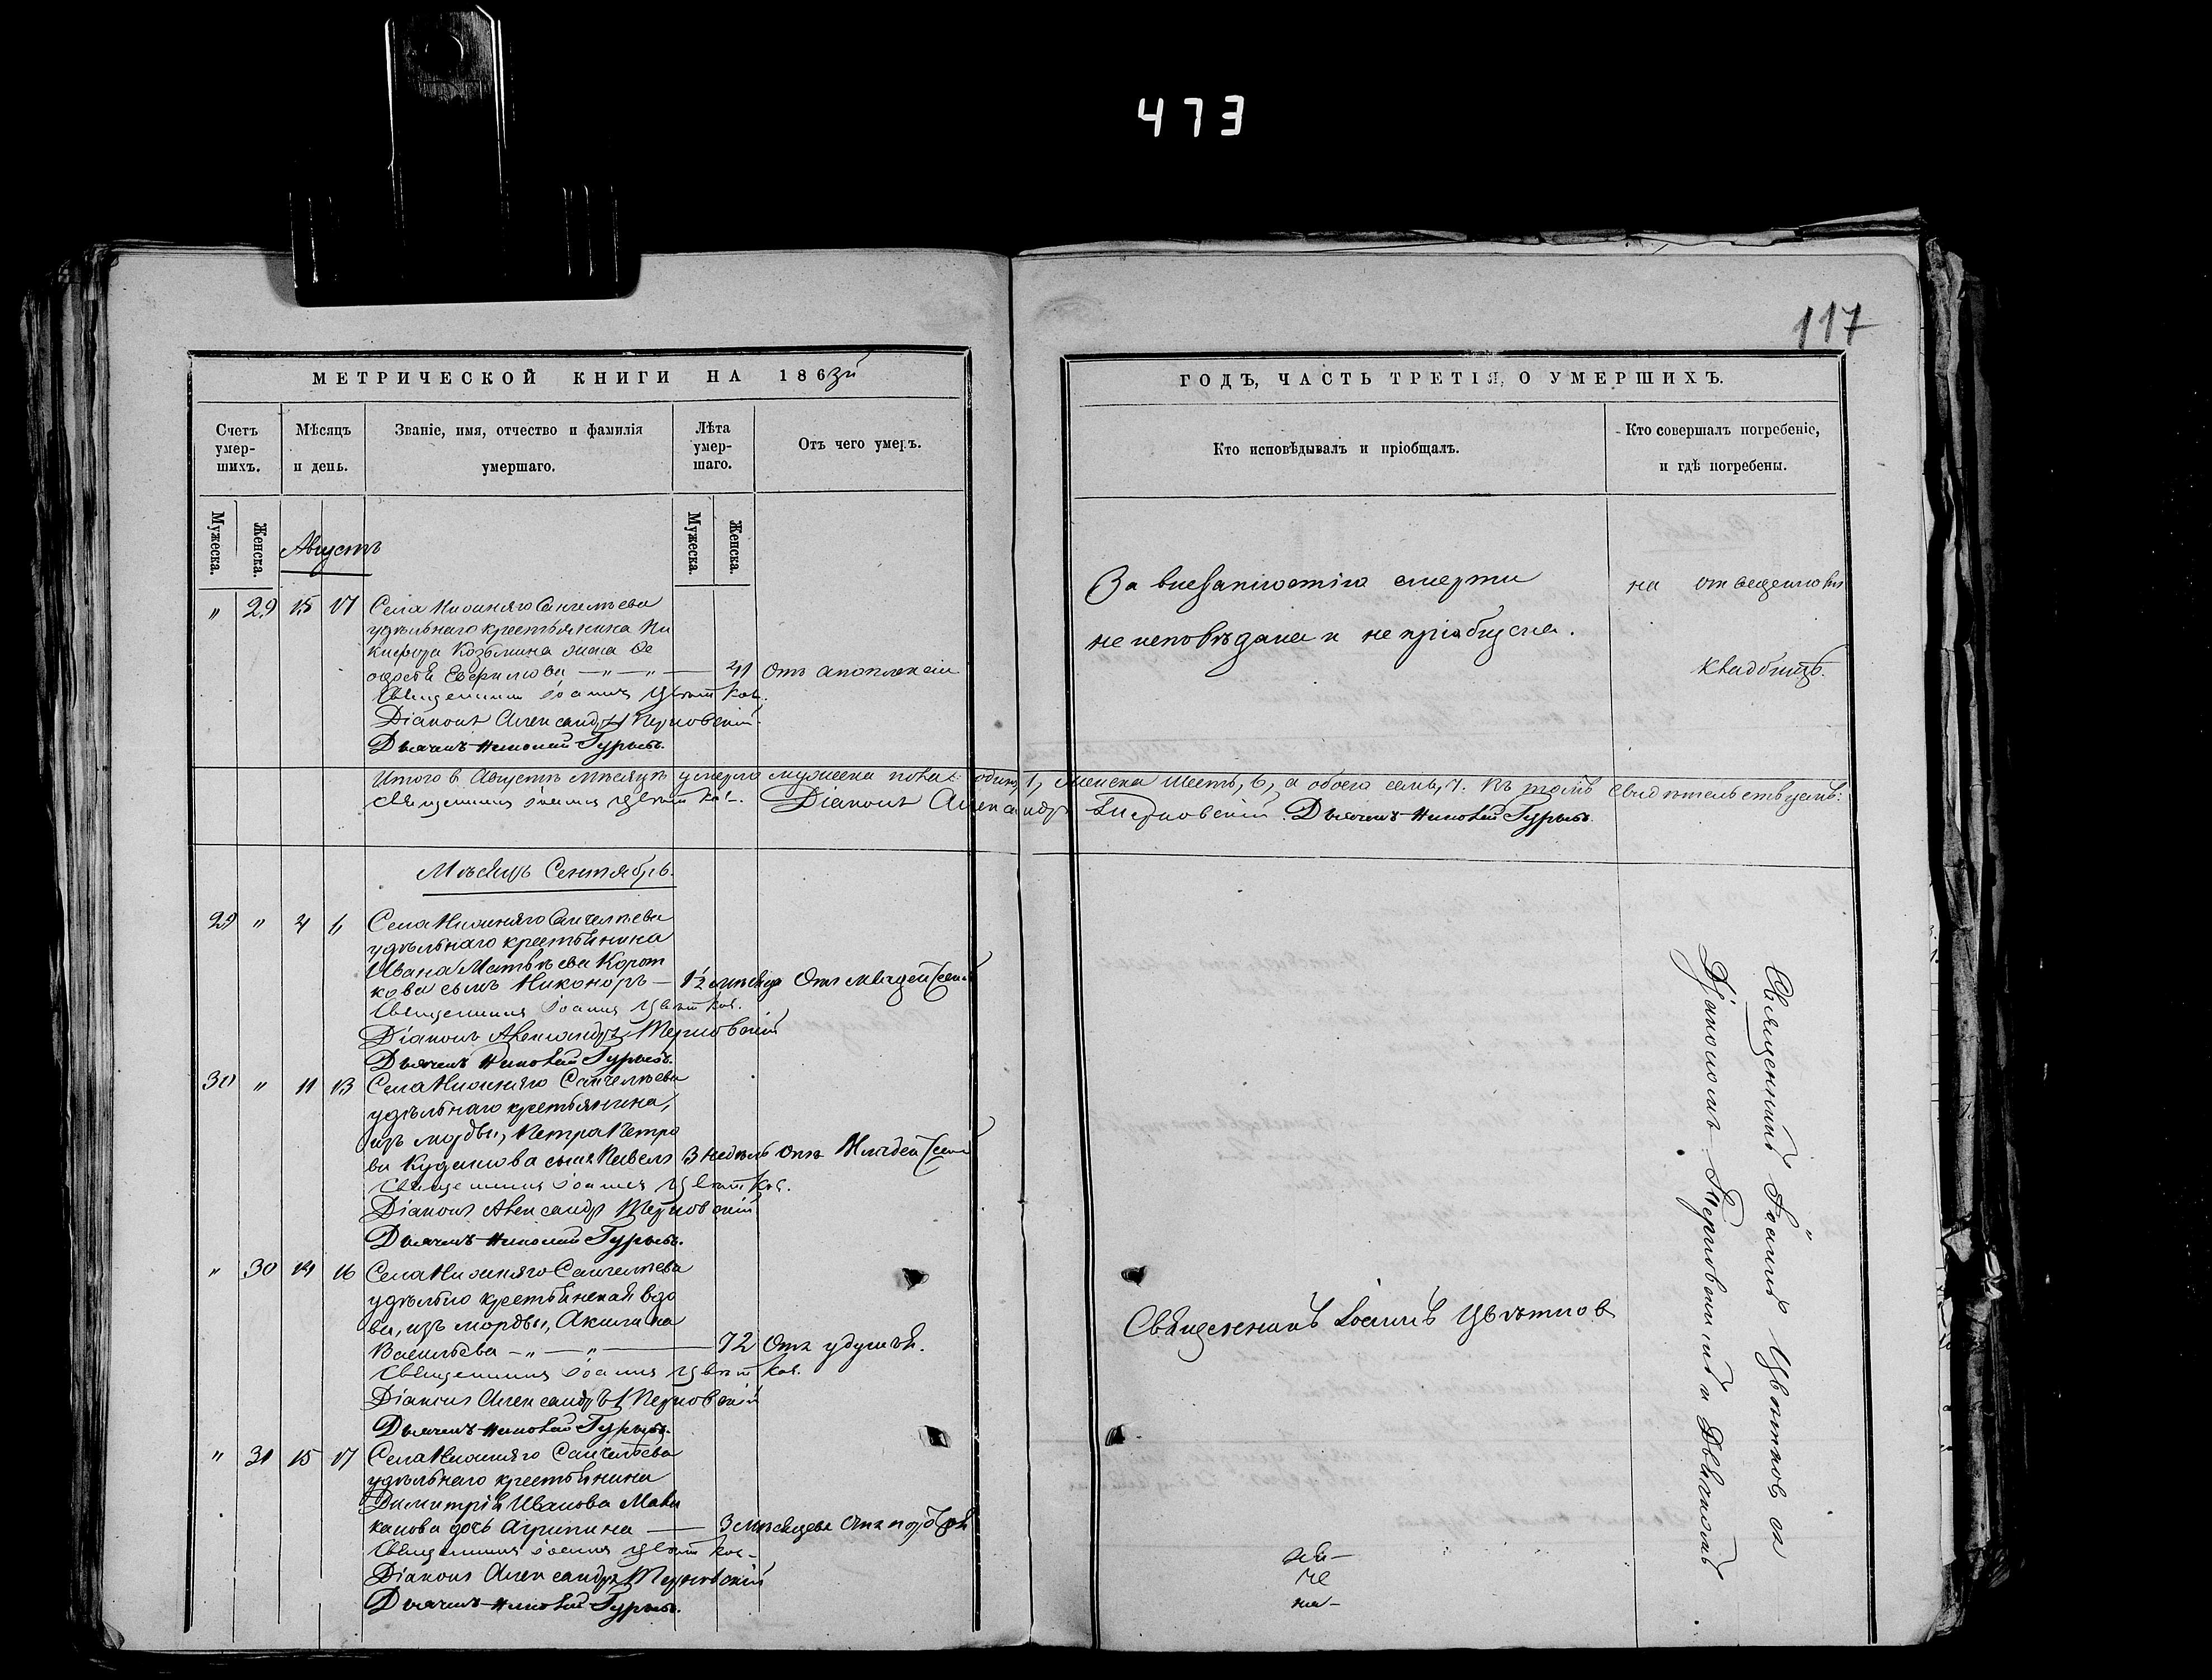 473
117
МЕТРИЧЕСКОЙ КНИГИ НА 186зй
ГОДЪ, ЧАСТЬ ТРЕТІЯ, О УМЕРШИХЪ.
Счетъ умер-шихъ.
Мѣсяцъ и день.
Званіе, имя, отчество и фамилія умершаго.
Лѣта умер-шаго.
Отъ чего умеръ.
Кто исповѣдывалъ и пріобщалъ.
Кто совершалъ погребеніе, и гдѣ погребены.
Мужеска.
Женска.
Мужеска.
Женска.
Августъ
" 29 15 17 Села Нижняго Санчелѣева
удѣльнаго крестьянина Ни
кифора Козьмина жена Ѳе
41 Отъ апоплексіи
Священникъ Іоаннъ Цвѣтков.
Діаконъ Александръ Терновскій
Дьячекъ Николай Гурьевъ.
За внезапностію смерти
не исповѣдана и не пріобщена.
на отведенномъ
кладбищѣ.
Итого в Августѣ мѣсяцѣ умерло мужеска пола один, 1, женска шесть, 6, а обоего семь, 7. Къ томѣ свидѣтельствуемъ:
Священникъ Іоаннъ Цвѣтков. Діаконъ Александръ Терновскій. Дьячекъ Николай Гурьевъ.
Мѣсяцъ Сентябрь.
29 " 4 6 Села Нижняго Санчелѣева
удѣльнаго крестьянина
Ивана Матвѣева Корот
кова сынъ Никоноръ — 1½ мѣсяца Отъ младенческ
Священникъ Іоаннъ Цвѣтков.
Діаконъ Александръ Терновскій
Дьячекъ Николай Гурьевъ.
30 " 11 13 Села Нижняго Санчелѣева
удѣльнаго крестьянина,
изъ мордвы, Петра Петро
ва Кудашова сынъ Павелъ 3 недѣль Отъ Младенческ
Священникъ Іоаннъ Цвѣтков.
Діаконъ Александръ Терновскій
Дьячекъ Николай Гурьевъ.
" 30 14 16 Села Нижняго Санчелѣева
удѣльно крестьянская вдо
ва, изъ мордвы, Акилина
Васильева — " — " — 72 Отъ удушья.
Священникъ Іоаннъ Цвѣтков.
Діаконъ Александръ Терновскій
Дьячекъ Николай Гурьевъ.
Священникъ Іоаннъ Цвѣтков
" 31 15 17 Села Нижняго Санчелѣева
удѣльнаго крестьянина
Димитрія Иванова Мака
канова дочь Агрипина — 3 мѣсяцевъ Отъ
Священникъ Іоаннъ Цвѣтков.
Діаконъ Александръ Терновскій
Дьячекъ Николай Гурьевъ.
Священникъ Іоаннъ Цвѣтков съ
Діакономъ Терновскимъ и Дьячкомъ